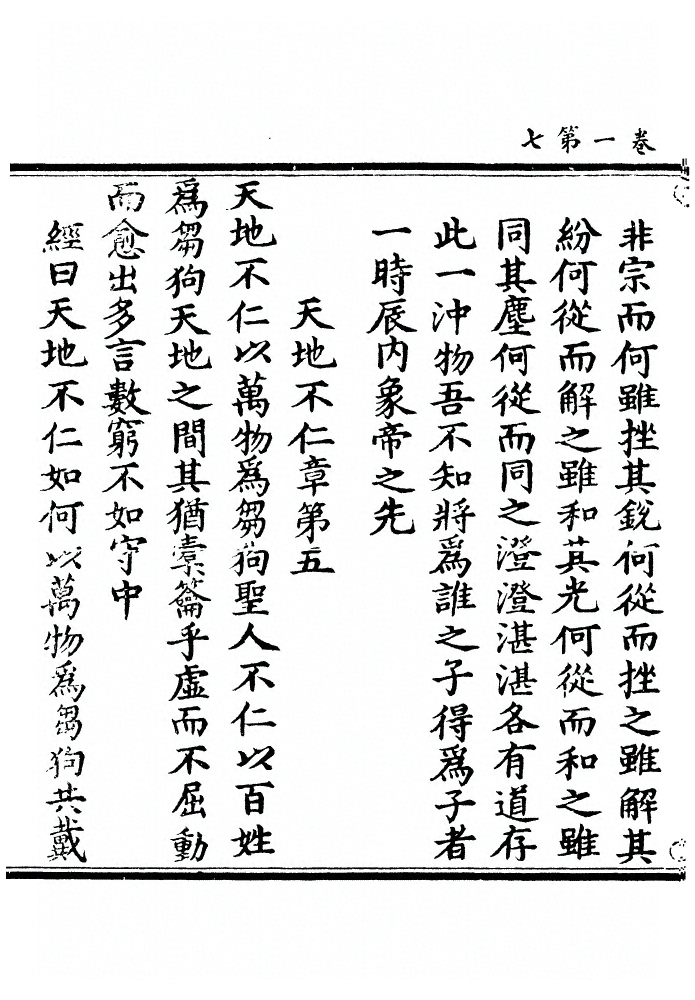 卷一第七
非宗而何雖挫其銳何從而挫之雖解其
紛何從而解之雖和其光何從而和之雖
同其塵何從而同之澄澄湛湛各有道存
此一沖物吾不知將爲誰之子得爲子者
一時辰內象帝之先
天地不仁章第五
天地不仁以萬物爲芻狗聖人不仁以百姓
爲芻狗天地之間其猶橐籥乎虛而不屈動
而愈出多言數窮不如守中
經曰天地不仁如何以萬物爲芻狗共戴